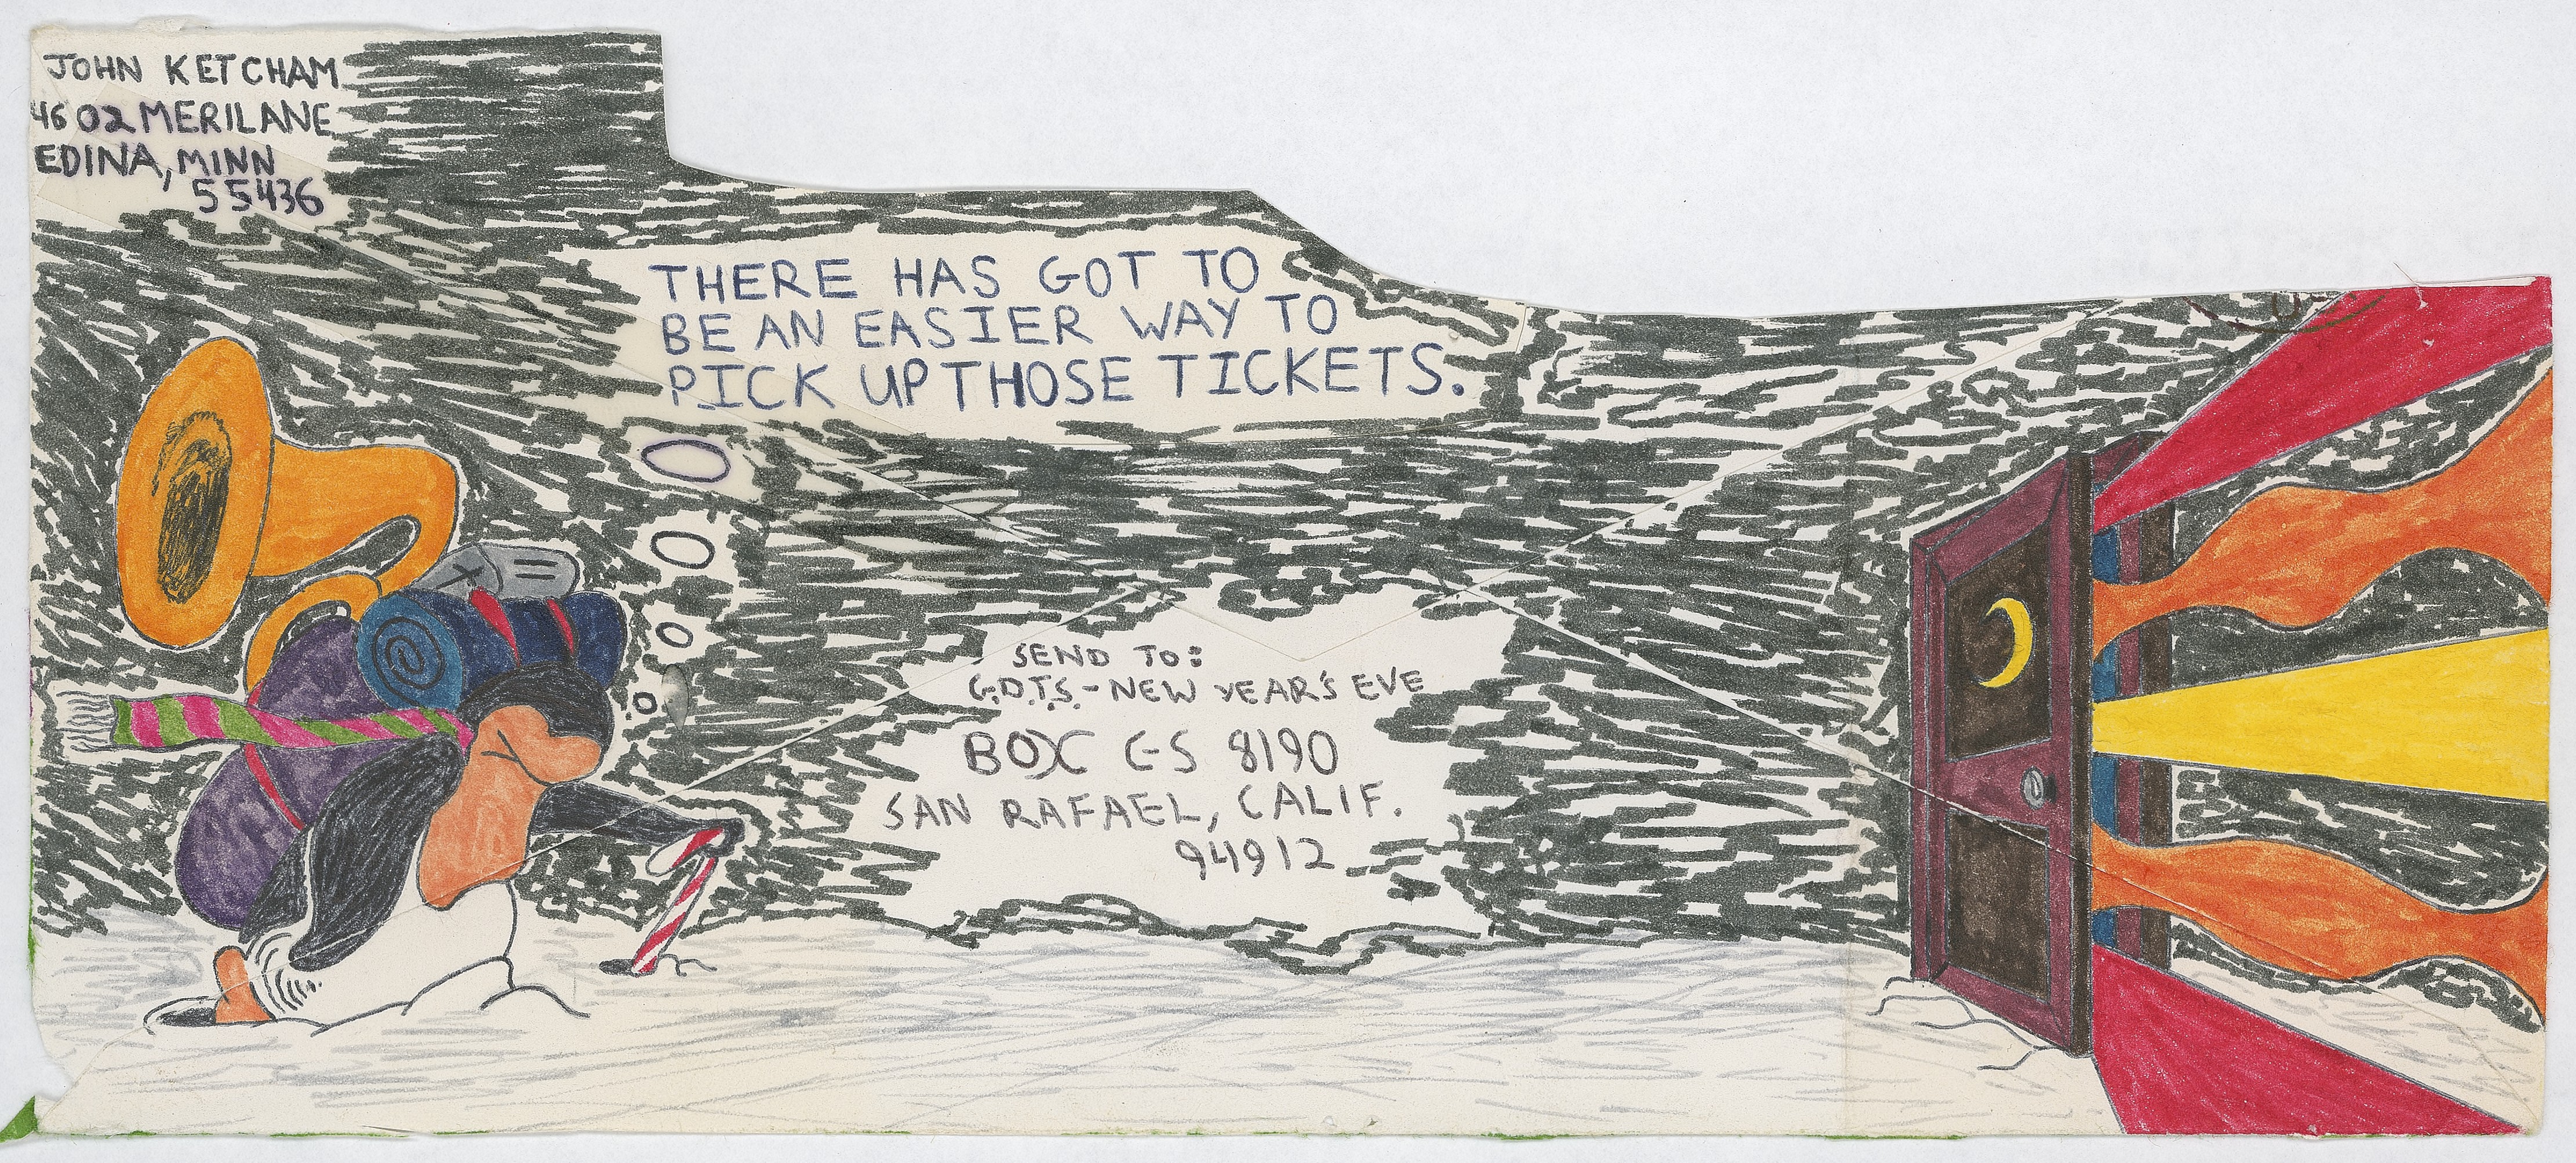 JOHN KETCHAM
4602 MERILANE
EDINA, MINN
55436
THERE HAS GOT TO
BE AN EASIER WAY TO
PICK UP THOSE TICKETS.
SEND TO:
G.D.T.S. - NEW YEAR'S EVE
BOX C-S 8190
SAN RAFAEL, CALIF.
94912